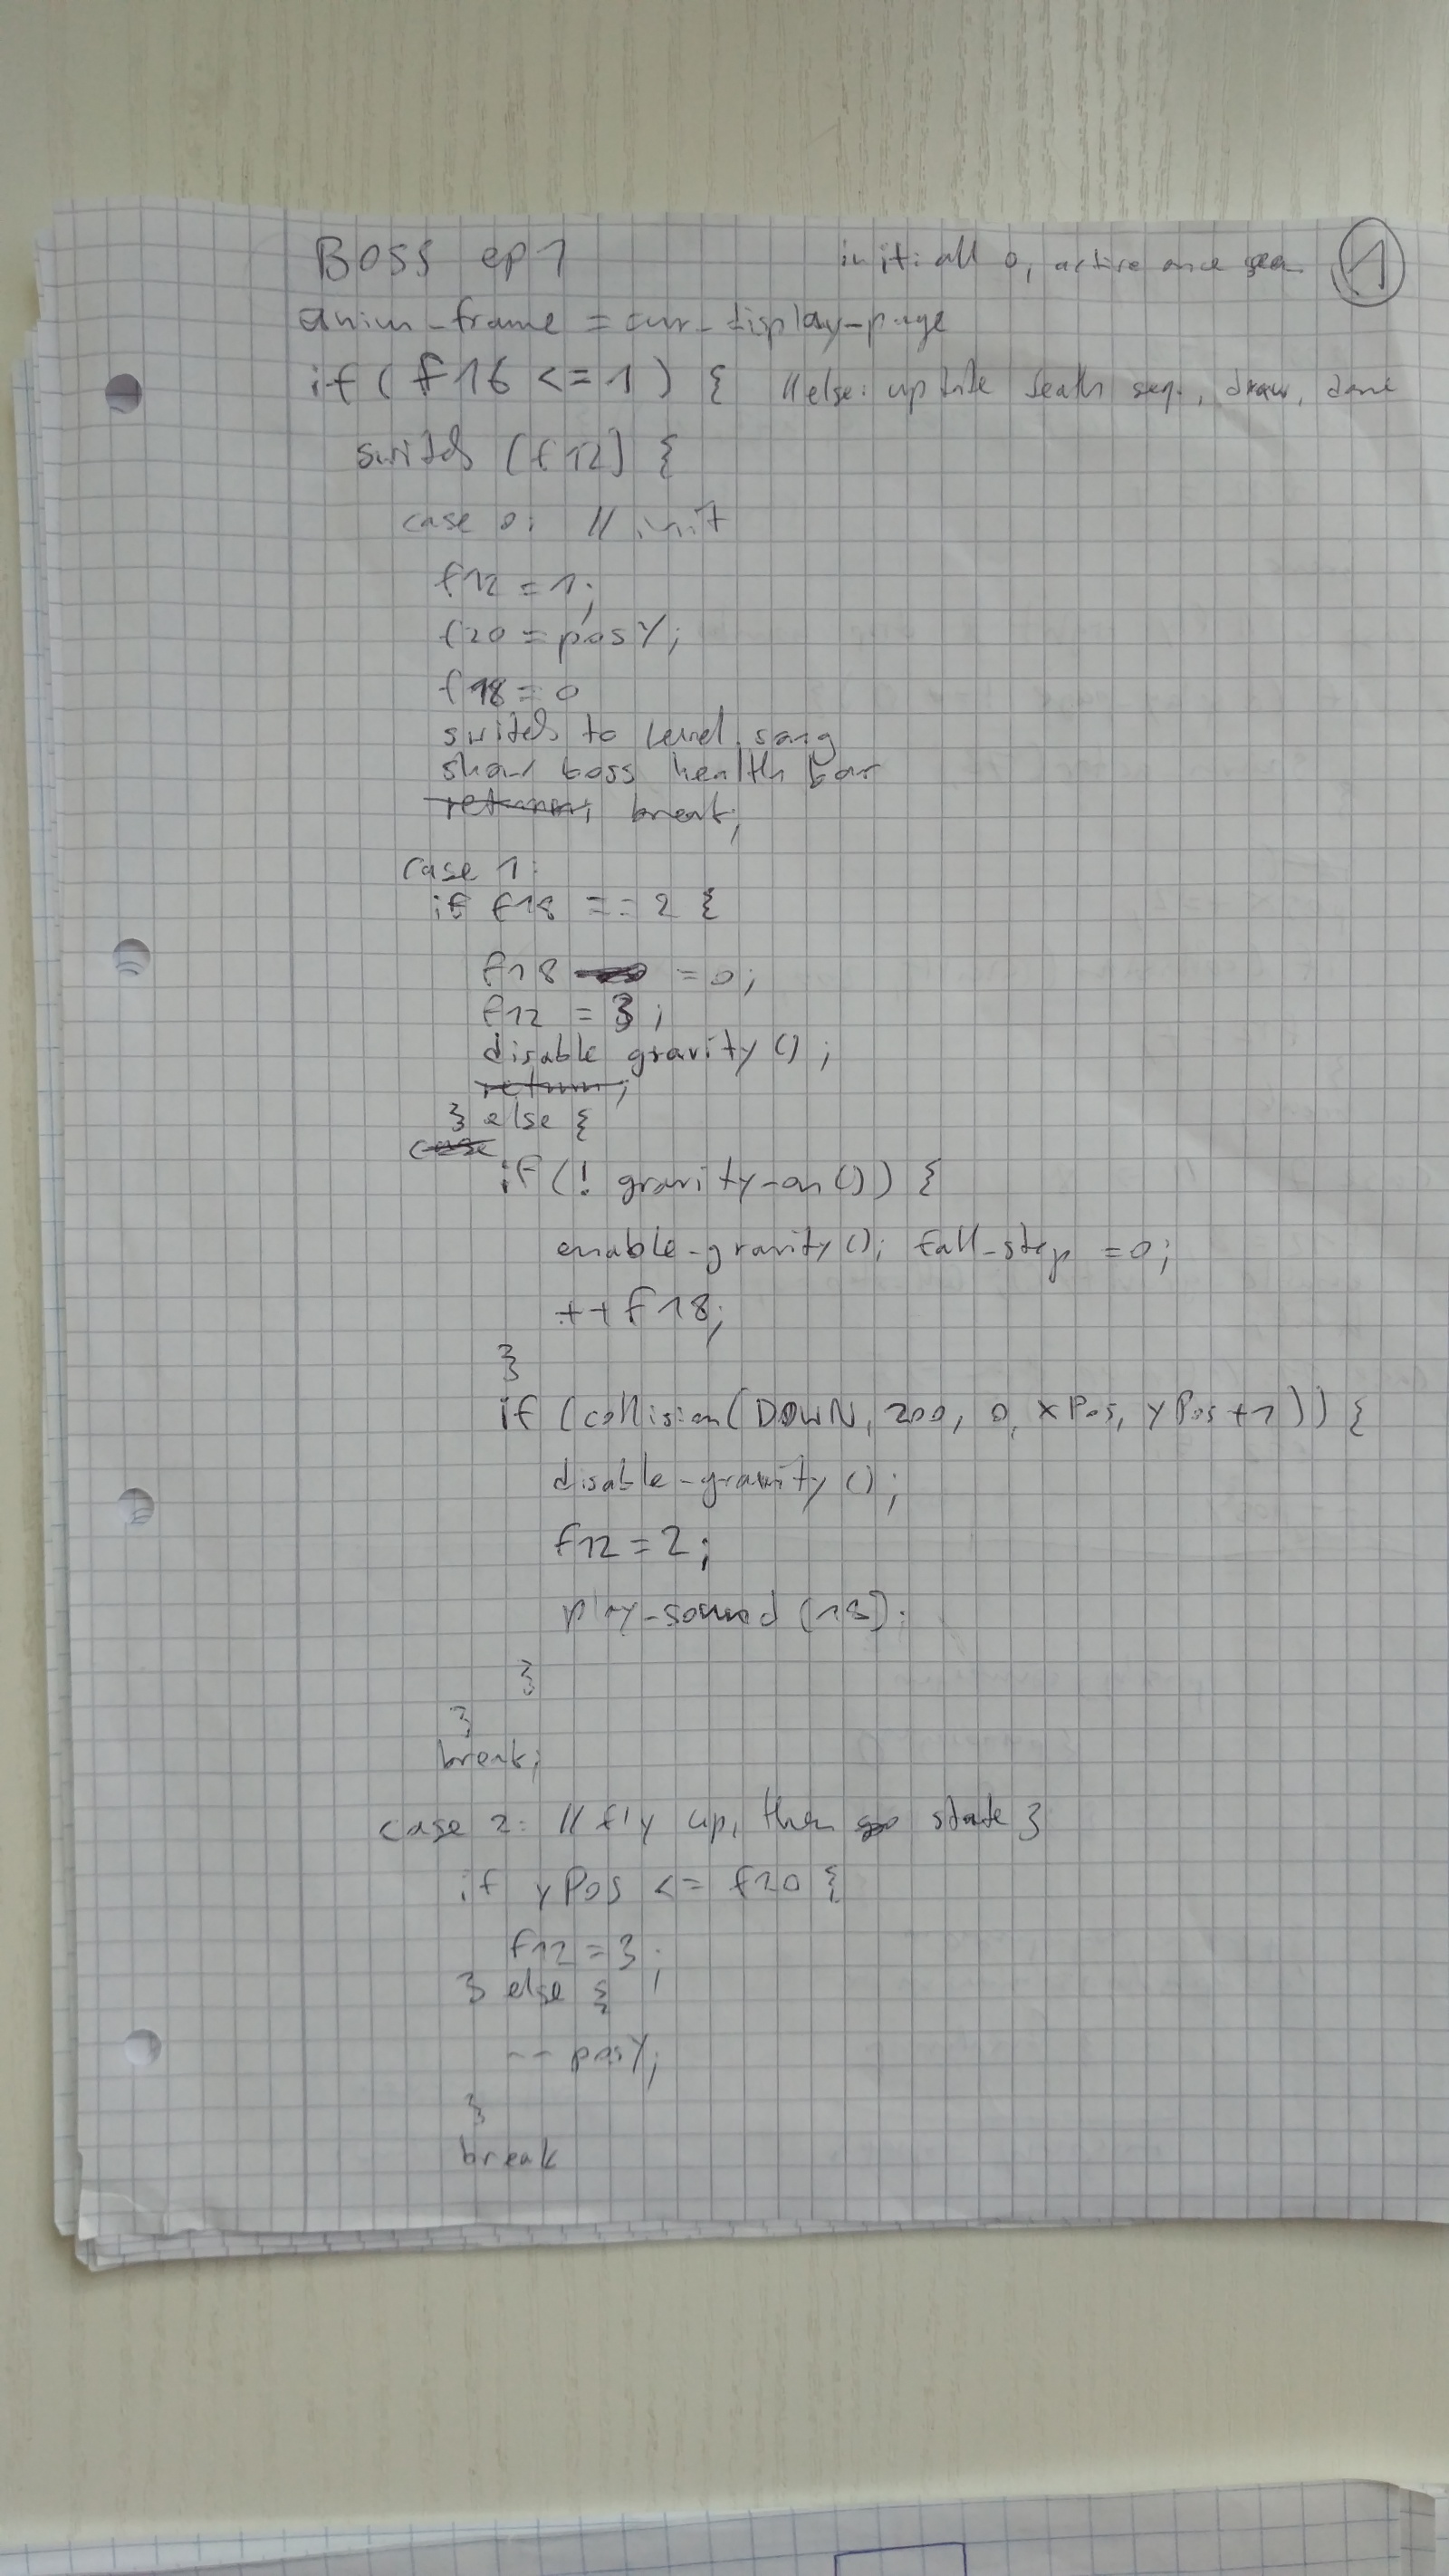 Boss ep1 init: all 0, active once seen 1
anim-frame = cur-display-page
if ( f16 <= 1 ) { // else: update death seq., draw, done
switch (f12) {
case 0: // init
f12 = 1;
f20 = posY;
f18 = 0
switch to level song
show boss health bar
return; break;
case 1:
if f18 == 2 {
f18 = 0;
f12 = 3;
disable gravity ();
return;
} else {
case
if (! gravity-on ()) {
enable-gravity (); fall-step = 0;
++f18;
}
if (collision (DOWN, 200, 0, xPos, yPos + 1)) {
disable-gravity ();
f12 = 2;
play-sound (18);
}
}
break;
case 2: // fly up, then go state 3
if yPos <= f20 {
f12 = 3;
} else {
-- posY;
}
break